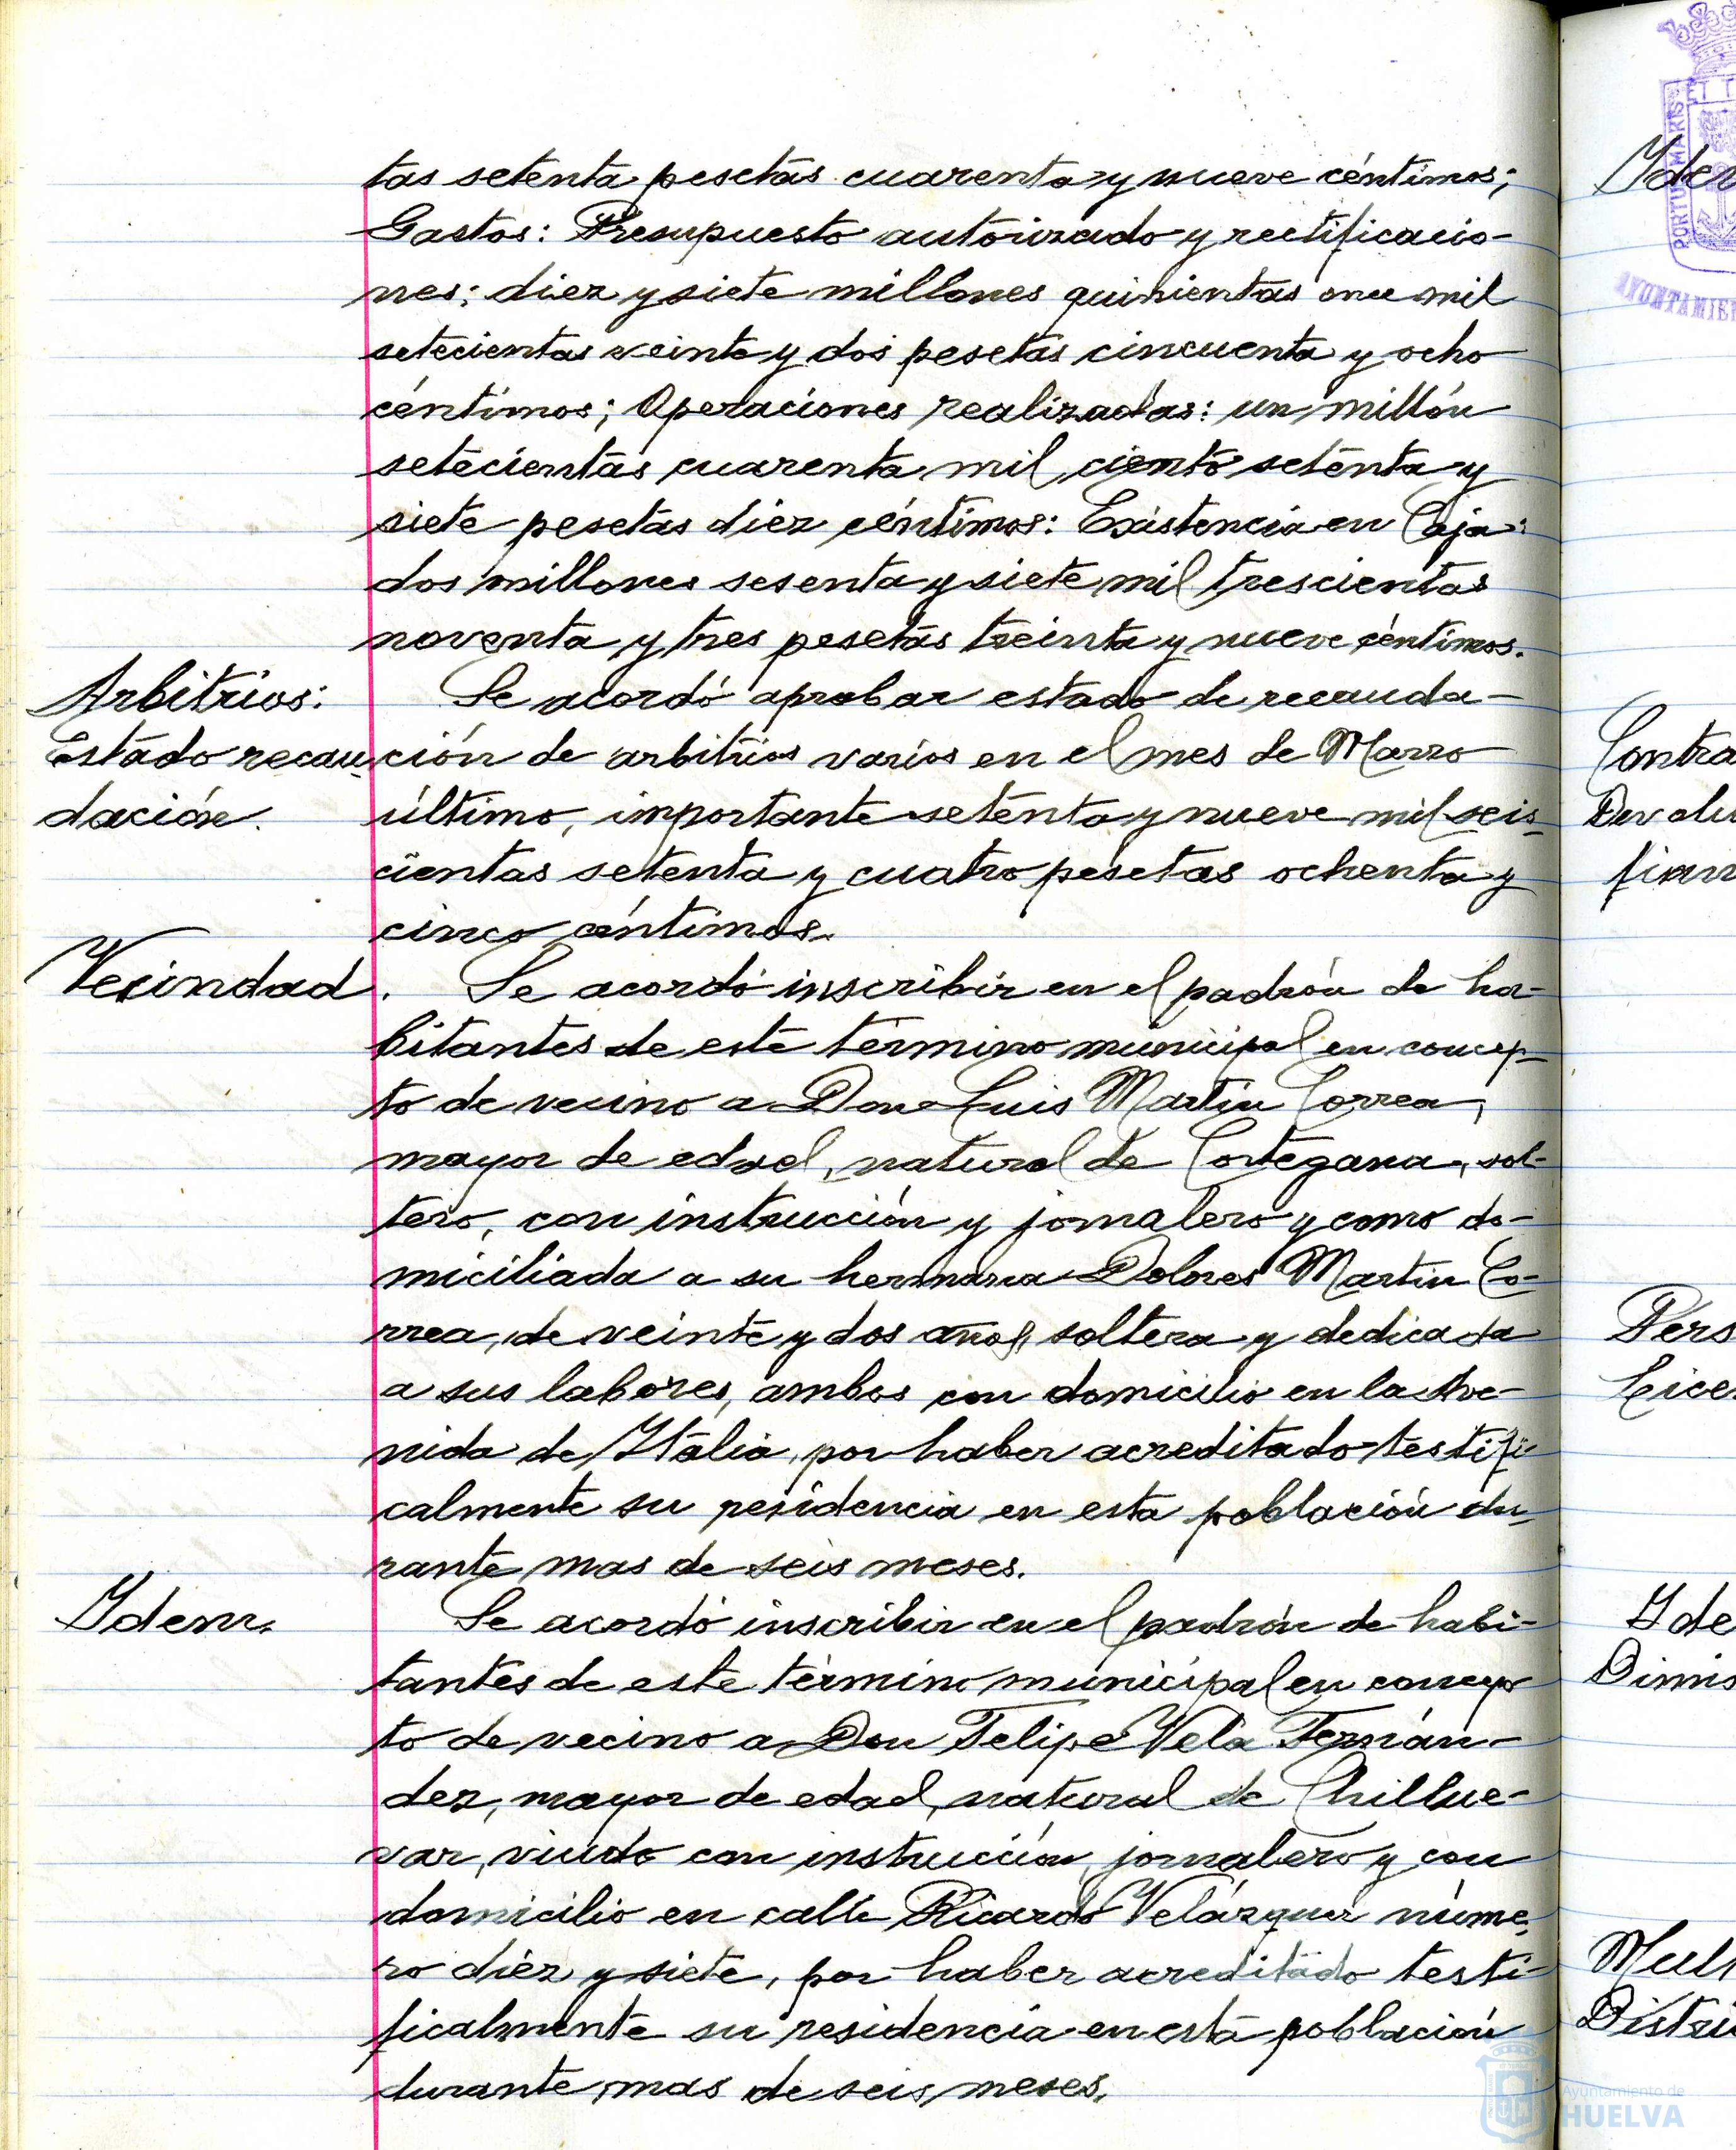 tas setenta pesetas cuarenta y nueve céntimos;
Gastos: Presupuesto autorizado y rectificacio-
nes: diez y siete millones quinientas once mil
setecientas veinte y dos pesetas cincuenta y ocho
céntimos; Operaciones realizadas: un millón
setecientas cuarenta mil ciento setenta y
siete pesetas diez céntimos: Existencia en Caja:
dos millones sesenta y siete mil trescientas
noventa y tres pesetas treinta y nueve céntimos.
Arbitrios:
Estado recau-
dación.
Se acordó aprobar estado de recauda-
ción de arbitrios varios en el mes de Marzo
último, importante setenta y nueve mil seis-
cientas setenta y cuatro pesetas ochenta y
cinco céntimos.
Vecindad.
Se acordó inscribir en el padrón de ha-
bitantes de este término municipal en concep-
to de vecino a Don Luis Martín Correa,
mayor de edad, natural de Cortegana, sol-
tero, con instrucción y jornalero y como do-
miciliada a su hermana Dolores Martín Co-
rrea, de veinte y dos años, soltera y dedicada
a sus labores, ambos con domicilio en la Ave-
nida de Italia, por haber acreditado testifi-
calmente su residencia en esta población du-
rante mas de seis meses.
Idem.
Se acordó inscribir en el padrón de habi-
tantes de este término municipal en concep-
to de vecino a Don Felipe Vela Fernán-
dez, mayor de edad, natural de Chillue-
var, viudo con instrucción, jornalero y con
domicilio en calle Ricardo Velázquez núme-
ro diez y siete, por haber acreditado testi-
ficalmente su residencia en esta población
durante mas de seis meses.
PORTUS MARIS ET T
AYUNTAMIEN
Iden
Contra
Devolu
fian
Pers
Lice
Ide
Dimis
Mult
Distri
Ayuntamiento de
HUELVA